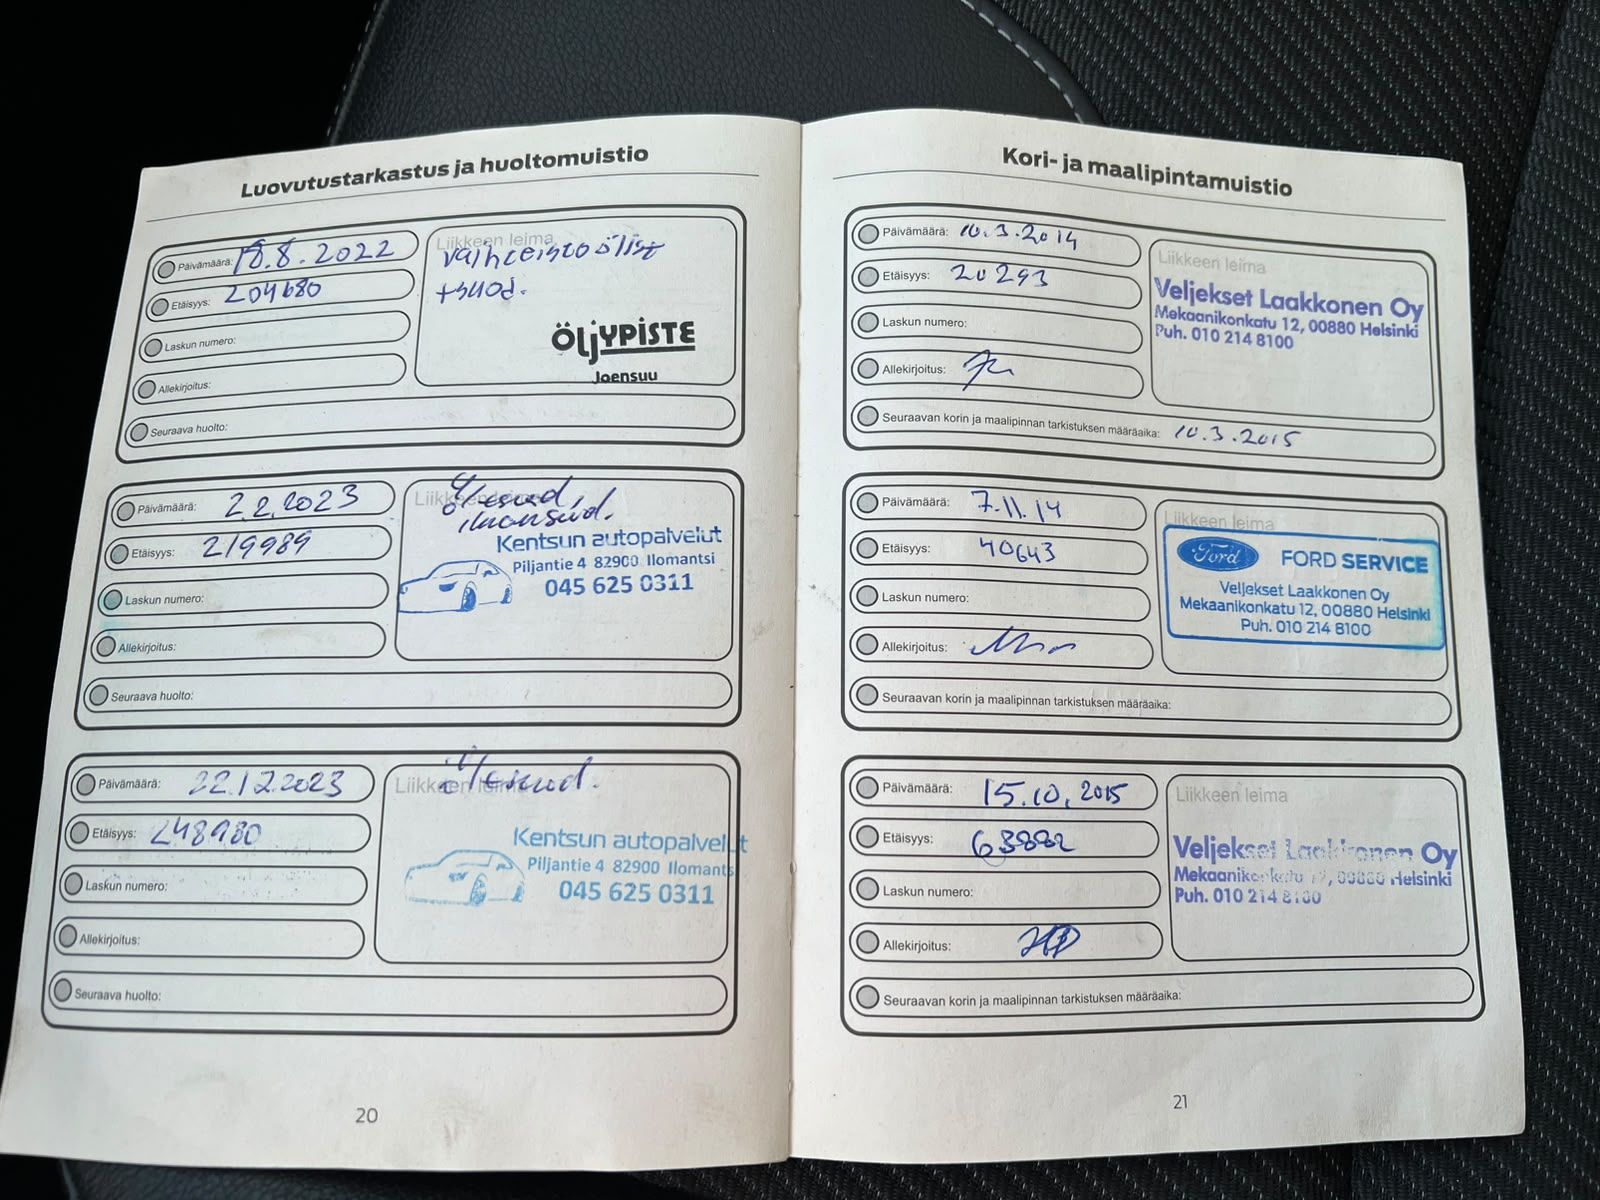 Luovutustarkastus ja huoltomuistio
Päivämäärä: 18.8.2022
Etäisyys: 204680
Laskun numero:
Allekirjoitus:
Seuraava huolto:
Liikkeen leima
vaihteistoöljyt
+suod.
ÖljYPISTE
Joensuu
Päivämäärä: 2.2.2023
Etäisyys: 219989
Laskun numero:
Allekirjoitus:
Seuraava huolto:
Liikkeen leima
Kentsun autopalvelut
Piljantie 4 82900 Ilomantsi
045 625 0311
Päivämäärä: 22.12.2023
Etäisyys: 248980
Laskun numero:
Allekirjoitus:
Seuraava huolto:
Liikkeen leima
Kentsun autopalvelut
Piljantie 4 82900 Ilomants
045 625 0311
20
Kori- ja maalipintamuistio
Päivämäärä: 10.3.2014
Etäisyys: 20293
Laskun numero:
Allekirjoitus:
Seuraavan korin ja maalipinnan tarkistuksen määräaika: 10.3.2015
Liikkeen leima
Veljekset Laakkonen Oy
Mekaanikonkatu 12, 00880 Helsinki
Puh. 010 214 8100
Päivämäärä: 7.11.14
Etäisyys: 40643
Laskun numero:
Allekirjoitus:
Seuraavan korin ja maalipinnan tarkistuksen määräaika:
Liikkeen leima
Ford FORD SERVICE
Veljekset Laakkonen Oy
Mekaanikonkatu 12, 00880 Helsinki
Puh. 010 214 8100
Päivämäärä: 15.10.2015
Etäisyys: 63882
Laskun numero:
Allekirjoitus:
Seuraavan korin ja maalipinnan tarkistuksen määräaika:
Liikkeen leima
Veljekset Laakkonen Oy
Mekaanikonkatu 12, 00880 Helsinki
Puh. 010 214 8100
21